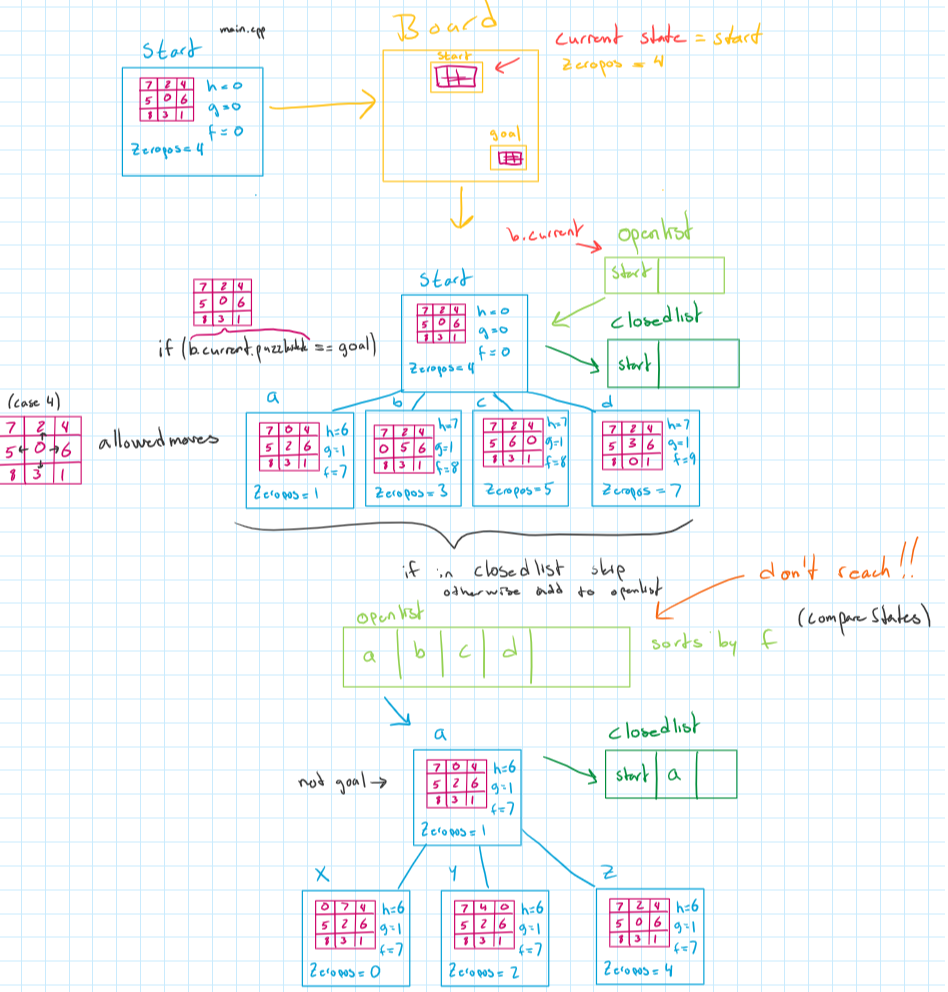 main.cpp
Start
7 2 4
5 0 6
8 3 1
h=0
g=0
f=0
Zeropos=4
Board
start
goal
current state = start
Zeropos = 4
b.current
openlist
start
closedlist
start
Start
7 2 4
5 0 6
8 3 1
h=0
g=0
f=0
Zeropos=4
7 2 4
5 0 6
8 3 1
if (b.current.puzzle == goal)
(case 4)
7 2 4
5 ← 0 → 6
8 3 1
allowed moves
a
7 0 4
5 2 6
8 3 1
h=6
g=1
f=7
Zeropos=1
b
7 2 4
0 5 6
8 3 1
h=7
g=1
f=8
Zeropos=3
c
7 2 4
5 6 0
8 3 1
h=7
g=1
f=8
Zeropos=5
d
7 2 4
5 3 6
8 0 1
h=7
g=1
f=9
Zeropos=7
if in closedlist skip
otherwise add to openlist
don't reach!!
(compare states)
openlist
a b c d
sorts by f
a
not goal →
7 0 4
5 2 6
8 3 1
h=6
g=1
f=7
Zeropos=1
closedlist
start a
X
0 7 4
5 2 6
8 3 1
h=6
g=1
f=7
Zeropos=0
Y
7 4 0
5 2 6
8 3 1
h=6
g=1
f=7
Zeropos=2
Z
7 2 4
5 0 6
8 3 1
h=6
g=1
f=7
Zeropos=4